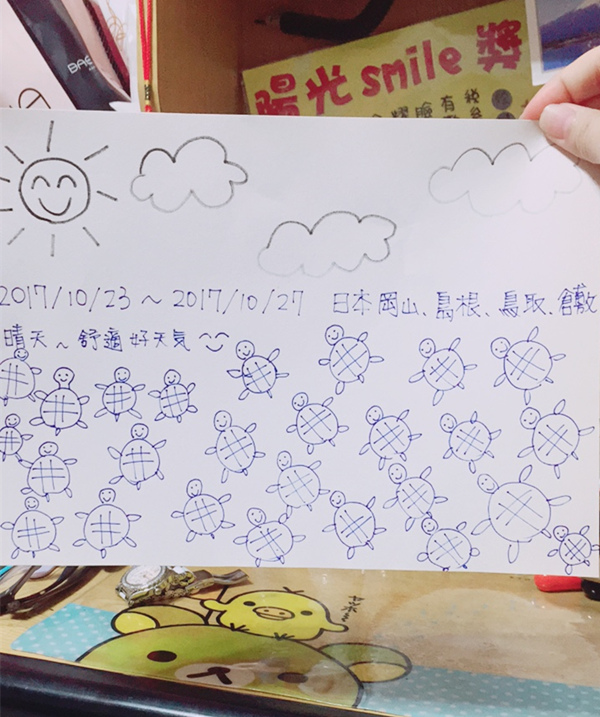 BAE
陽光smile獎
2017/10/23～2017/10/27 日本岡山、島根、鳥取、倉敷
晴天~舒適好天氣